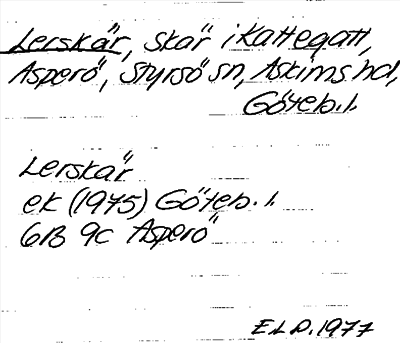 Lerskär, skär i Kattegatt,
Asperö, Styrsö sn, Askims hd,
Göteb. l.
Lerskär
ek (1975) Göteb. l.
6B 9c Asperö
E.L.D. 1977